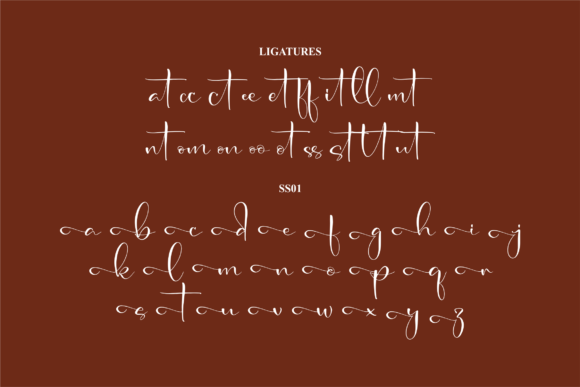 LIGATURES
at cc ct ee et ff it ll mt
nt om on oo ot ss st tt ut
SS01
a b c d e f g h i j
k l m n o p q r
s t u v w x y z